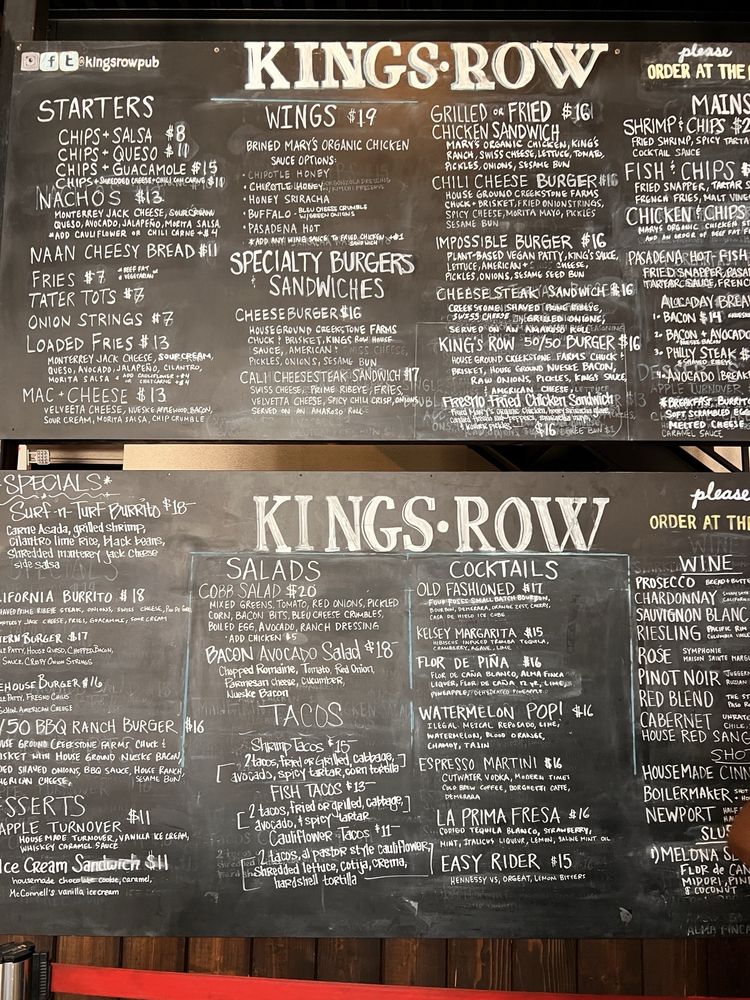 @kingsrowpub
KINGS·ROW
please
ORDER AT THE
STARTERS
CHIPS + SALSA $8
CHIPS + QUESO $11
CHIPS + GUACAMOLE $15
CHIPS + SHREDDED CHEESE + CHILI CON CARNE $10
NACHOS $13
MONTEREY JACK CHEESE, SOUR CREAM,
QUESO, AVOCADO, JALAPEÑO, MORITA SALSA
*ADD CAULIFLOWER OR CHILI CARNE +$4
NAAN CHEESY BREAD $11
FRIES $7 *BEEF FAT
*VEGETARIAN
TATER TOTS $7
ONION STRINGS $7
LOADED FRIES $13
MONTEREY JACK CHEESE, SOUR CREAM,
QUESO, AVOCADO, JALAPEÑO, CILANTRO,
MORITA SALSA
MAC + CHEESE $13
VELVEETA CHEESE, NUESKE APPLEWOOD BACON,
SOUR CREAM, MORITA SALSA, CHIP CRUMBLE
WINGS $19
BRINED MARY'S ORGANIC CHICKEN
SAUCE OPTIONS:
· CHIPOTLE HONEY
· CHIPOTLE HONEY
· HONEY SRIRACHA
· BUFFALO - BLEU CHEESE CRUMBLE
W/ GREEN ONIONS
· PASADENA HOT
*ADD ANY WING SAUCE TO FRIED CHICKEN +$1
SANDWICH
SPECIALTY BURGERS
& SANDWICHES
CHEESEBURGER $16
HOUSEGROUND CREEKSTONE FARMS
CHUCK & BRISKET, KINGS ROW HOUSE
SAUCE, AMERICAN CHEESE,
PICKLES, ONIONS, SESAME BUN
CALI CHEESESTEAK SANDWICH $17
SWISS CHEESE, PRIME RIBEYE, FRIES,
VELVETTA CHEESE, SPICY CHILI CRISP, ONIONS,
SERVED ON AN AMAROSO ROLL
GRILLED OR FRIED $16
CHICKEN SANDWICH
MARY'S ORGANIC CHICKEN, KING'S
RANCH, SWISS CHEESE, LETTUCE, TOMATO,
PICKLES, ONIONS, SESAME BUN
CHILI CHEESE BURGER $16
HOUSE GROUND CREEKSTONE FARMS
CHUCK + BRISKET, FRIED ONION STRINGS,
SPICY CHEESE, MORITA MAYO, PICKLES
SESAME BUN
IMPOSSIBLE BURGER $16
PLANT-BASED VEGAN PATTY, KING'S SAUCE,
LETTUCE, AMERICAN CHEESE,
PICKLES, ONIONS, SESAME SEED BUN
CHEESESTEAK SANDWICH $16
CREEKSTONE SHAVED PRIME RIBEYE,
SWISS CHEESE GRILLED ONIONS,
SERVED ON AN AMAROSO ROLL
KING'S ROW 50/50 BURGER $16
HOUSE GROUND CREEKSTONE FARMS CHUCK +
BRISKET, HOUSE GROUND NUESKE BACON,
RAW ONIONS, PICKLES, KING'S SAUCE,
AMERICAN CHEESE, LETTUCE
Fresno Fried Chicken Sandwich
$16
MAINS
SHRIMP & CHIPS $2
FRIED SHRIMP, SPICY TARTA
COCKTAIL SAUCE
FISH & CHIPS $
FRIED SNAPPER, TARTAR S
FRENCH FRIES, MALT VINE
CHICKEN & CHIPS
MARYS ORGANIC CHICKEN B
AND AN ORDER OF BEEF FAT F
PASADENA HOT FISH
FRIED SNAPPER, PASA
TARTAR SAUCE, FRENC
ALLCADAY BREA
1· BACON $14
2· BACON + AVOCADO
3· PHILLY STEAK $
AVOCADO BREAK
*BREAKFAST BURRITO
SOFT SCRAMBLED EGG
MELTED CHEESE
CARAMEL SAUCE
KINGS·ROW
please
ORDER AT THE
SPECIALS*
Surf-n-Turf Burrito $18
Carne Asada, grilled shrimp,
Cilantro lime rice, black beans,
Shredded monterey Jack cheese
side salsa
LIFORNIA BURRITO $18
HAVED PRIME RIBEYE STEAK, ONIONS, SWISS CHEESE, PICO DE GA
NTEREY JACK CHEESE, FRIES, GUACAMOLE, SOUR CREAM
TERN BURGER $17
LE PATTY, HOUSE QUESO, CHOPPED BACON,
SAUCE, CRISPY ONION STRINGS
EHOUSE BURGER $16
LE PATTY, FRESNO CHILIS
SCHOOL AMERICAN CHEESE
/50 BBQ RANCH BURGER $16
USE GROUND CREEKSTONE FARMS CHUCK +
ISKET WITH HOUSE GROUND NUESKE BACON,
ED SHAVED ONIONS, BBQ SAUCE, HOUSE RANCH,
ERICAN CHEESE, SESAME BUN
ESSERTS
APPLE TURNOVER $11
HOUSE MADE TURNOVER, VANILLA ICE CREAM,
WHISKEY CARAMEL SAUCE
Ice Cream Sandwich $11
housemade chocolate cookie, caramel,
McConnell's vanilla ice cream
SALADS
COBB SALAD $20
MIXED GREENS, TOMATO, RED ONIONS, PICKLED
CORN, BACON BITS, BLEU CHEESE CRUMBLES,
BOILED EGG, AVOCADO, RANCH DRESSING
*ADD CHICKEN $5
BACON Avocado Salad $18
Chopped Romaine, Tomato, Red Onion,
Parmesan Cheese, Cucumber,
Nueske Bacon
TACOS
Shrimp Tacos $15
2 tacos, fried or grilled, cabbage,
avocado, spicy tartar, corn tortilla
FISH TACOS $13
2 tacos, fried or grilled, cabbage,
avocado, & spicy tartar
Cauliflower Tacos $11
2 tacos, al pastor style cauliflower,
Shredded lettuce, cotija, crema,
hardshell tortilla
COCKTAILS
OLD FASHIONED $17
FOUR ROSES SMALL BATCH BOURBON,
BOURBON, DEMERARA, ORANGE ZEST, CHERRY,
CASA DE HIELO ICE CUBE
KELSEY MARGARITA $15
HIBISCUS INFUSED TROMBA TEQUILA,
CRANBERRY, AGAVE, LIME
FLOR DE PIÑA $16
FLOR DE CAÑA BLANCO, ALMA FINCA
LIQUER, FLOR DE CAÑA 7 YR, LIME,
PINEAPPLE, DEHYDRATED PINEAPPLE
WATERMELON POP! $16
ILLEGAL MEZCAL REPOSADO, LIME,
WATERMELON, BLOOD ORANGE,
CHAMOY, TAJIN
ESPRESSO MARTINI $16
CUTWATER VODKA, MODERN TIMES
COLD BREW COFFEE, BORGHETTI CAFFE,
DEMERARA
LA PRIMA FRESA $16
CODIGO TEQUILA BLANCO, STRAWBERRY,
MINT, ITALICUS LIQUER, LEMON, SALINE MINT OIL
EASY RIDER $15
HENNESSY VS, ORGEAT, LEMON BITTERS
WINE
PROSECCO BREAD + BUTT
CHARDONNAY
SAUVIGNON BLANC
RIESLING PACIFIC RIM
COLUMBIA VALLE
ROSE SYMPHONIE
MAISON SAINTE MARGU
PINOT NOIR JUGGERN
RUSSIAN
RED BLEND THE ST
PASO R
CABERNET
HOUSE RED SANG
SHO
HOUSEMADE CINN
BOILERMAKER
NEWPORT
SLU
1) MELONA SL
FLOR de CAN
MIDORI, PIN
& COCONUT
ALMA FINCA